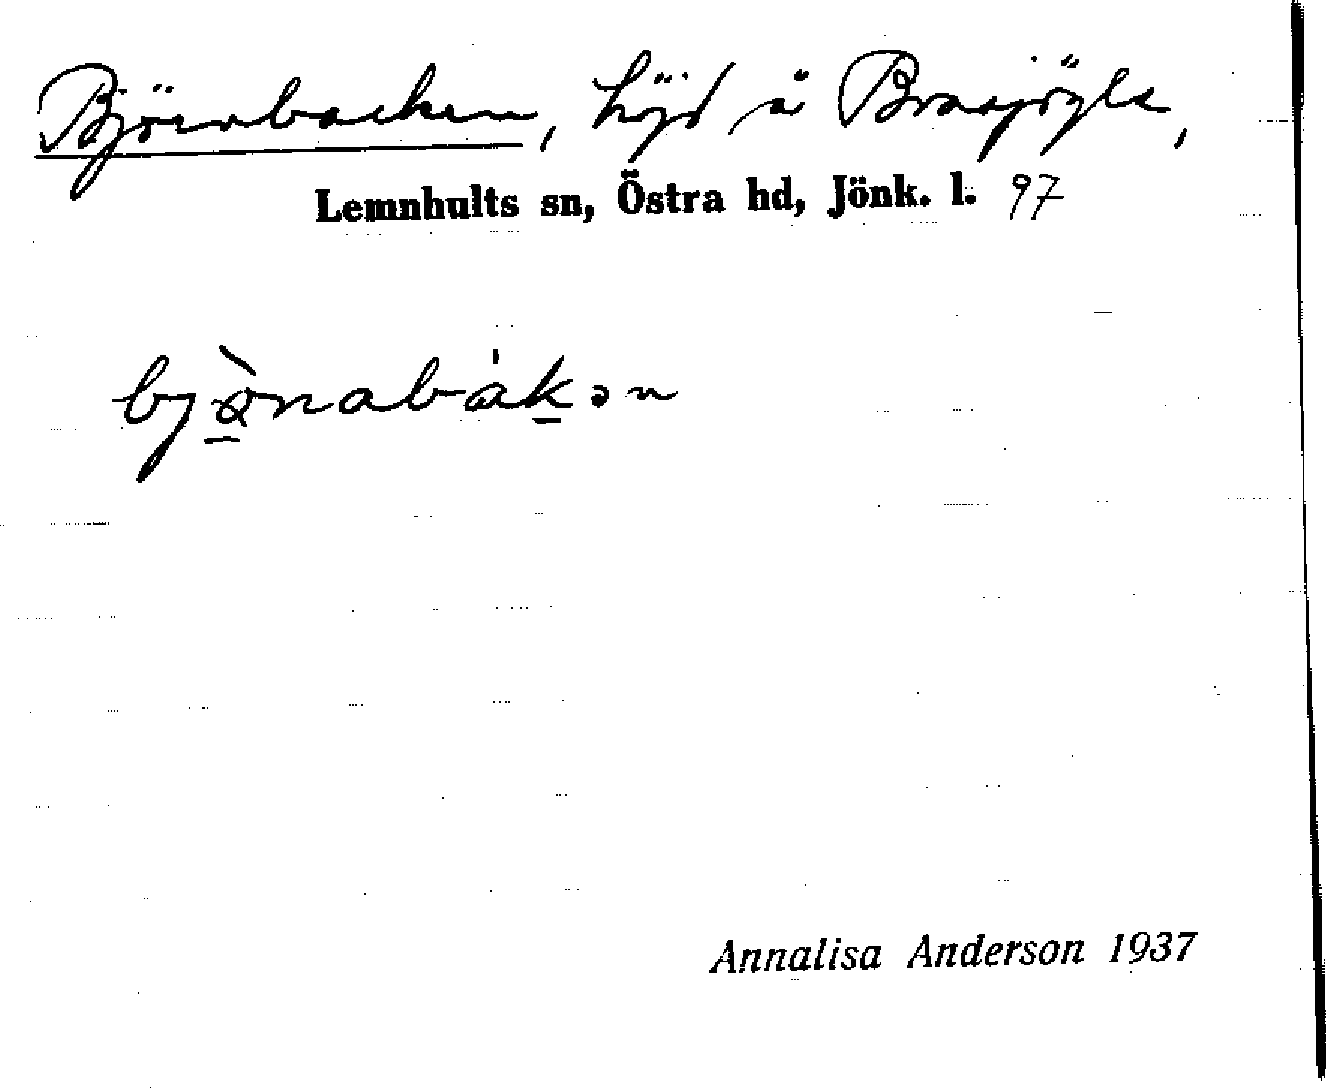 Björnbacken, höjd å Brasjögle,
Lemnhults sn, Östra hd, Jönk. l. 97
bjö̀nabákən
Annalisa Anderson 1937